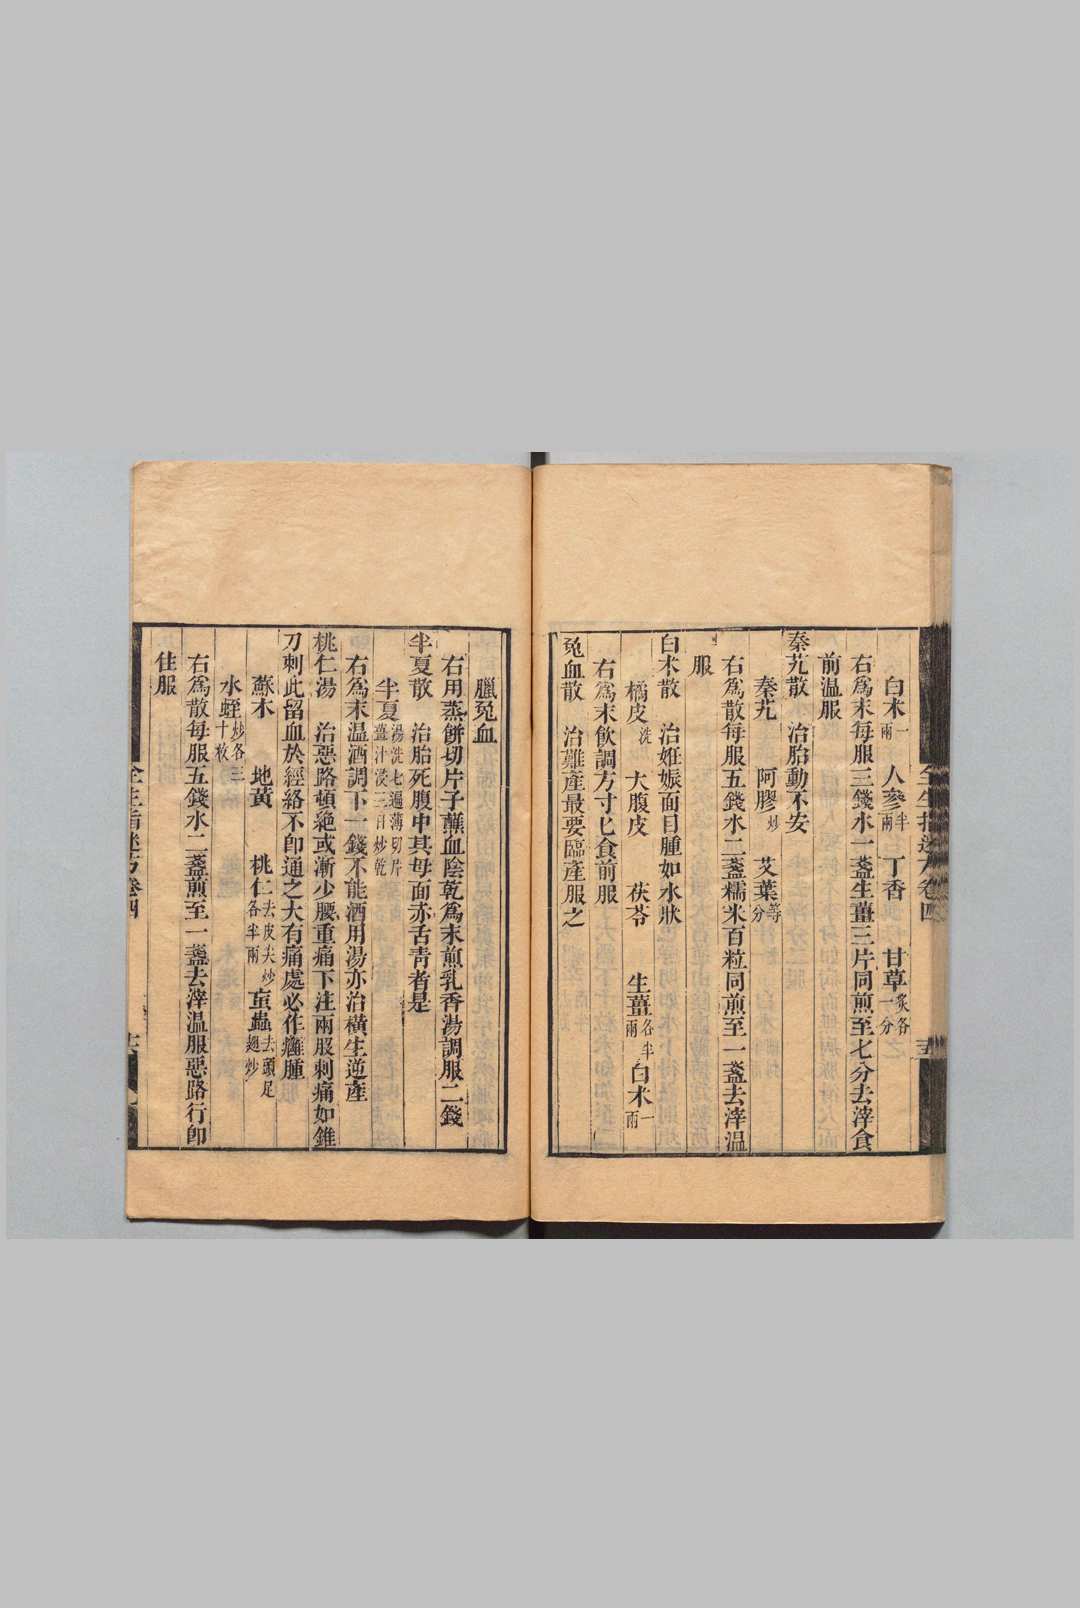 白木一兩　人參半兩　丁香　甘草炙各一分
右爲末每服三錢水一盞生薑三片同煎至七分去滓食
前溫服
秦艽散　治胎動不安
秦艽　阿膠炒　艾葉等分
右爲散每服五錢水二盞糯米百粒同煎至一盞去滓溫
服
白木散　治姙娠面目腫如水狀
橘皮洗　大腹皮　茯苓　生薑各半兩　白木一兩
右爲末飲調方寸匕食前服
兔血散　治難產最要臨產服之
全生指迷方卷四
十五
臘兔血
右用蒸餅切片子蘸血陰乾爲末煎乳香湯調服二錢
半夏散　治胎死腹中其母面赤舌青者是
半夏湯洗七遍薄切片薑汁浸三日炒乾
右爲末溫酒調下一錢不能酒用湯亦治橫生逆產
桃仁湯　治惡路頓絶或漸少腰重痛下注兩股刺痛如錐
刀刺此留血於經絡不卽通之大有痛處必作癰腫
蘇木　地黃　桃仁去皮尖炒各半兩　䖟蟲去頭足翅炒
水蛭炒各三十枚
右爲散每服五錢水二盞煎至一盞去滓溫服惡路行卽
住服
全生指迷方卷四
十六